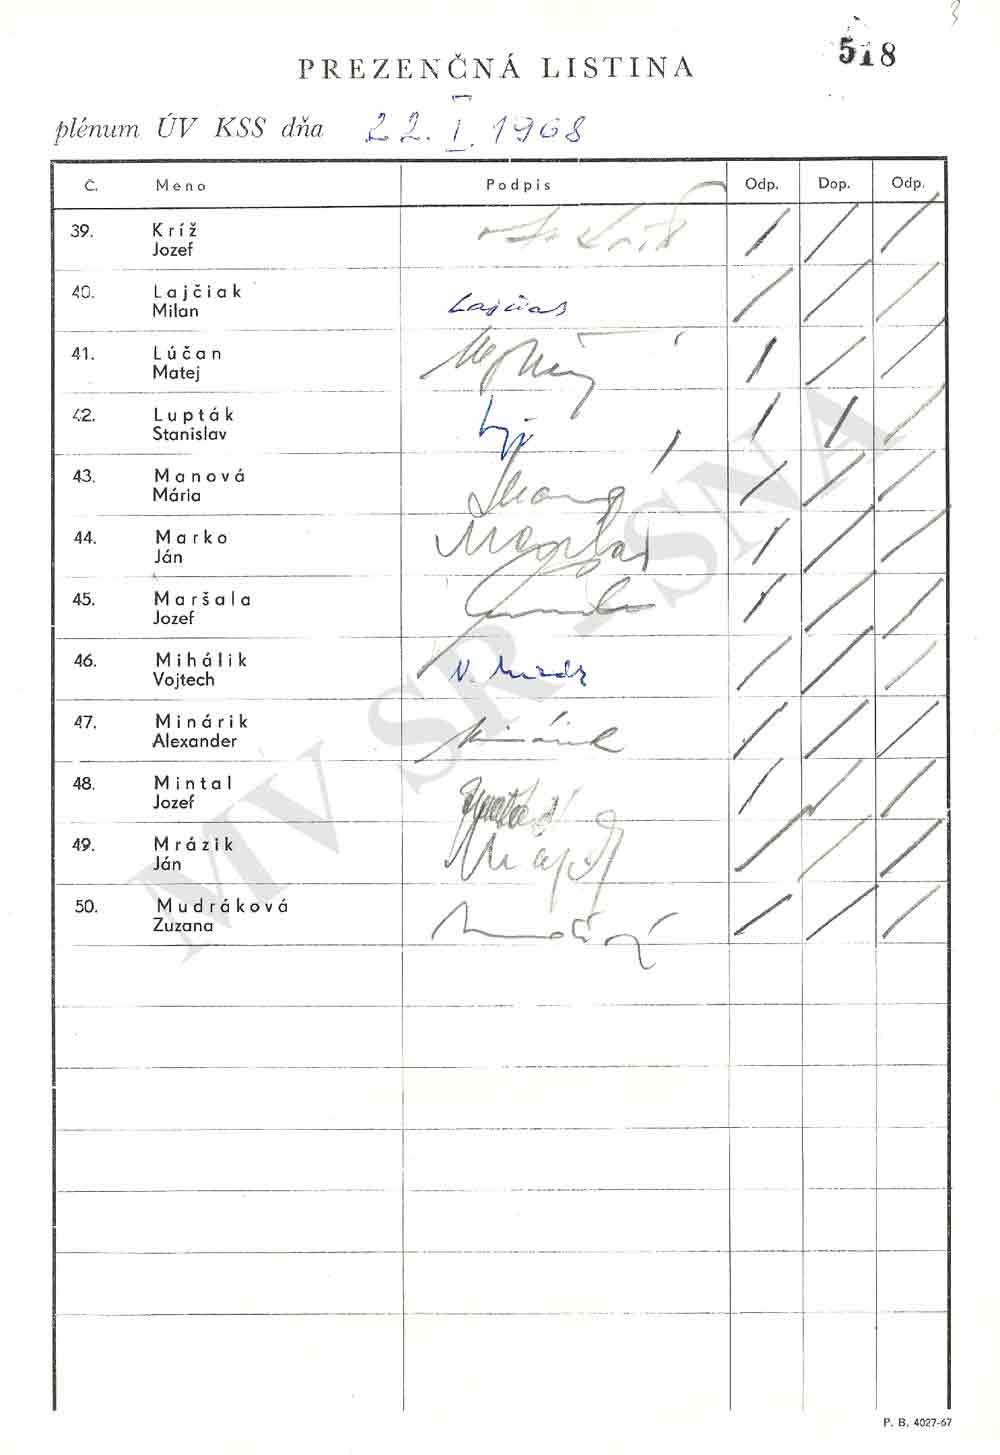 3
518
PREZENČNÁ LISTINA
plénum ÚV KSS dňa 22. I. 1968
Č. Meno Podpis Odp. Dop. Odp.
39. Kríž
Jozef
40. Lajčiak Lajčiak
Milan
41. Lúčan
Matej
42. Lupták
Stanislav
43. Manová
Mária
44. Marko
Ján
45. Maršala
Jozef
46. Mihálik
Vojtech
47. Minárik Minárik
Alexander
48. Mintal
Jozef
49. Mrázik
Ján
50. Mudráková
Zuzana
MV SR - SNA
P. B. 4027-67